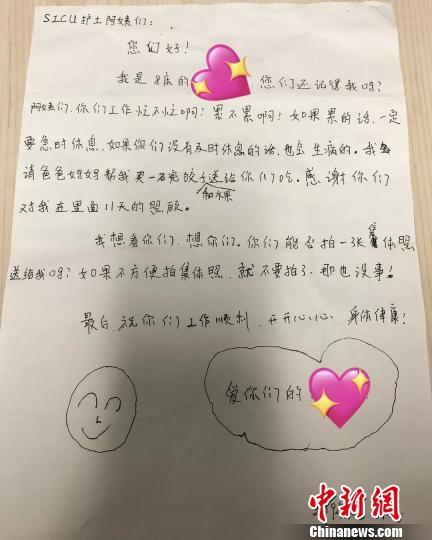 SICU护士阿姨们：
您们好！
我是8床的 您们还记得我吗？
阿姨们，你们工作忙不忙啊？累不累啊？如果累的话，一定
要急时休息，如果你们没有及时休息的话，也会生病的。我
请爸爸妈妈帮我买一些饺子送给你们吃。感谢你们
和水果
对我在里面11天的照顾。
我想看你们，想你们。你们能否拍一张集体照
送给我吗？如果不方便拍集体照，就不要拍了，那也没事！
最后，祝你们工作顺利，开开心心，身体健康！
爱你们的
中新网
Chinanews.com